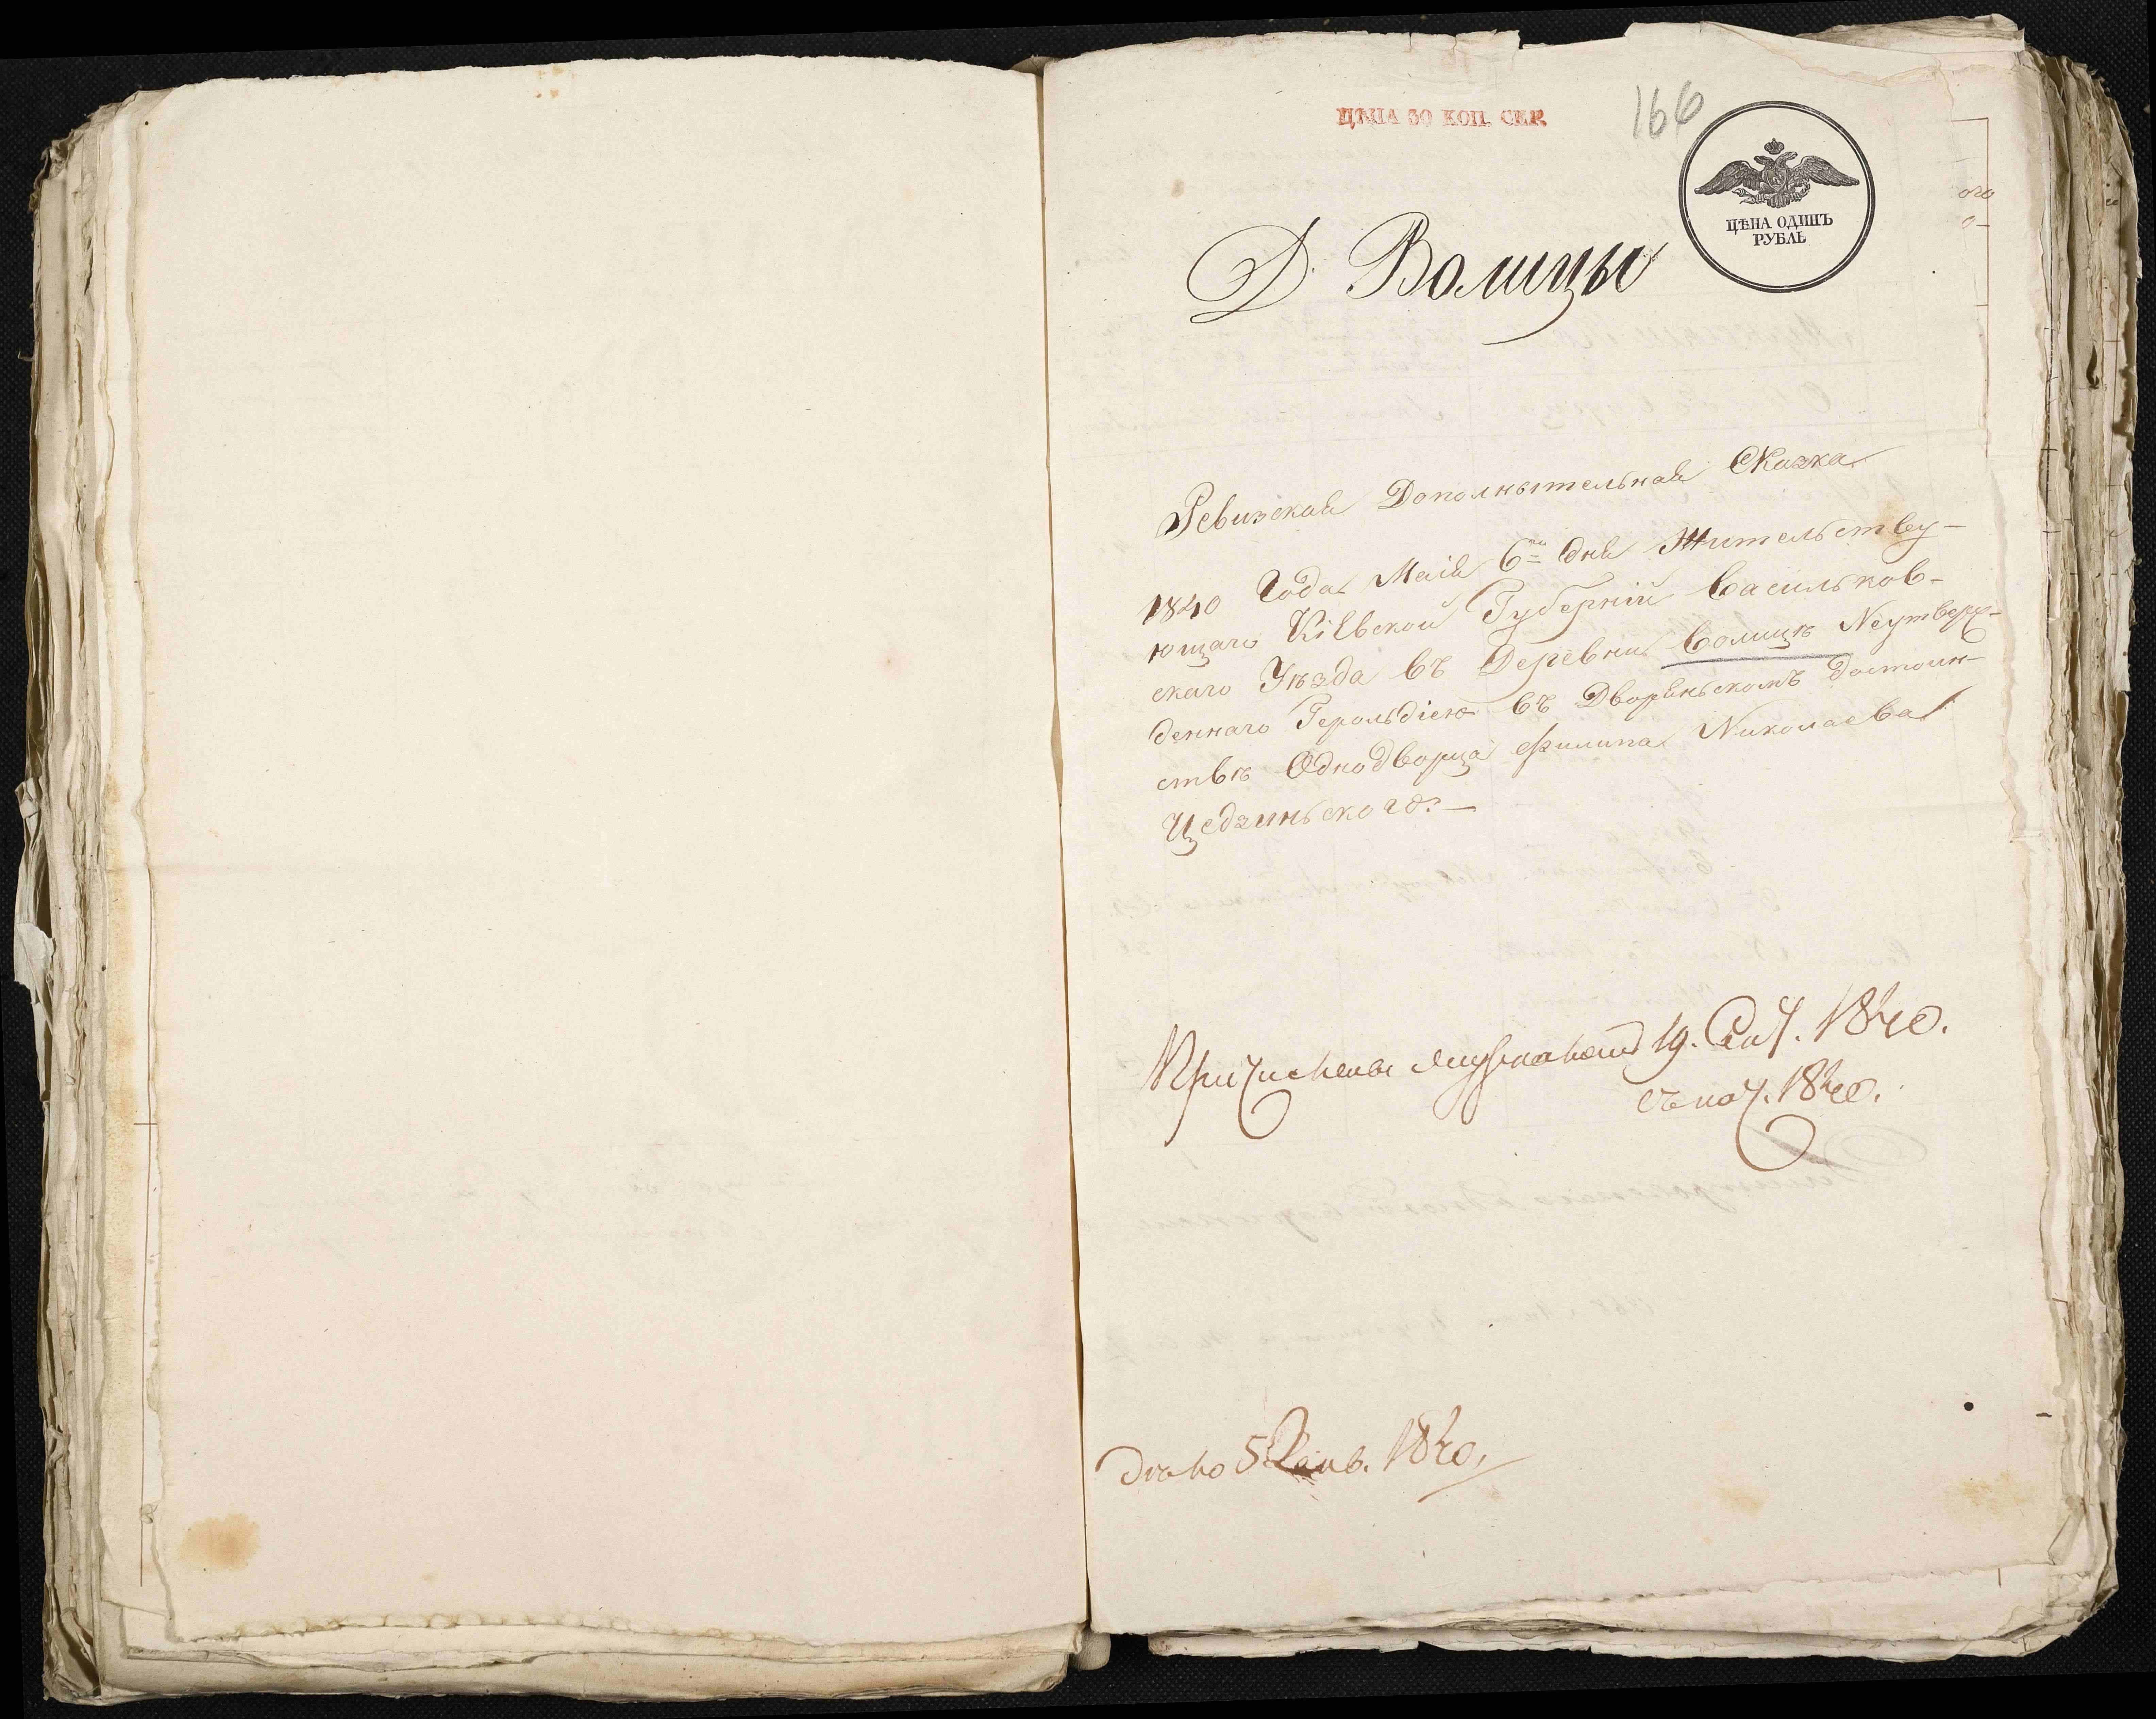 ЦѢНА 30 КОП. СЕР.
166
ЦѢНА ОДИНЪ
РУБЛЬ
Д. Волицы
Ревизская Дополнытельная Сказка
1840 Года Маія 6го дня Жительству-
ющаго Кіевской Губерніи Васильков-
скаго Уѣзда въ Деревни Волицѣ Неутверж-
деннаго Герольдіею въ Дворяньскомъ достоин-
ствѣ Однодворца Филипа Николаева
Цедзиньского.—
Причислены 19. 1840.
съ пол. 1840.
5 Янв. 1840.